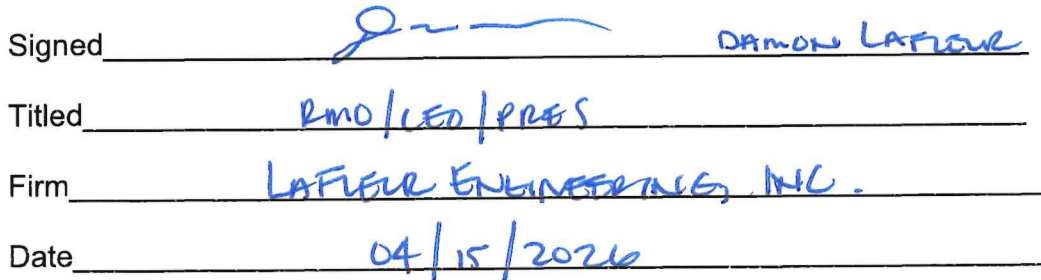 Signed DAMON LAFLEUR
Titled RMO/CEO/PRES
Firm LAFLEUR ENGINEERING, INC.
Date 04/15/2026